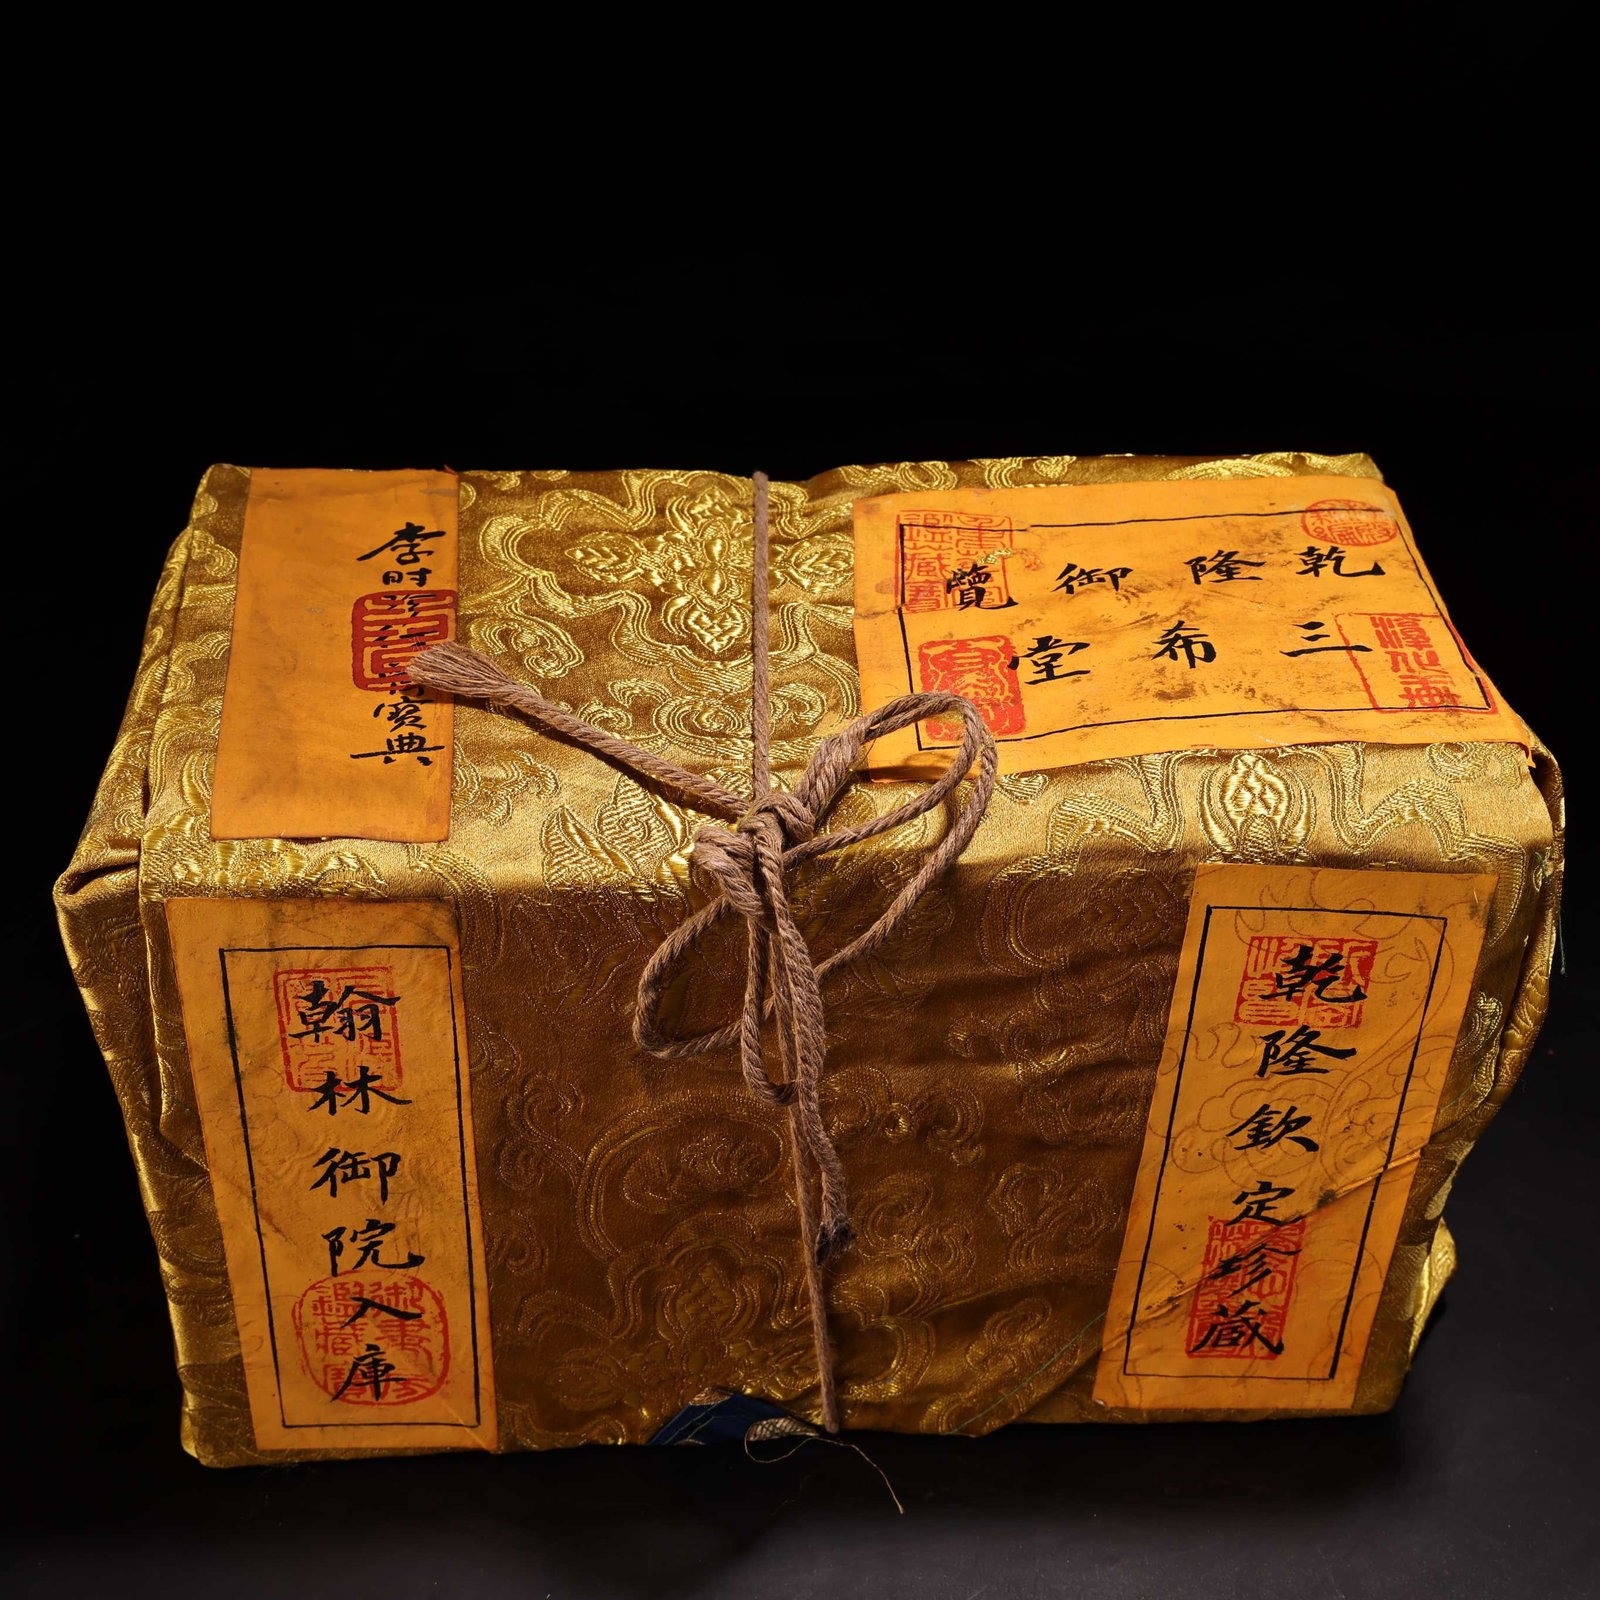 李时珍
寶典
乾隆御覽
三希堂
翰林御院入庫
乾隆欽定珍藏